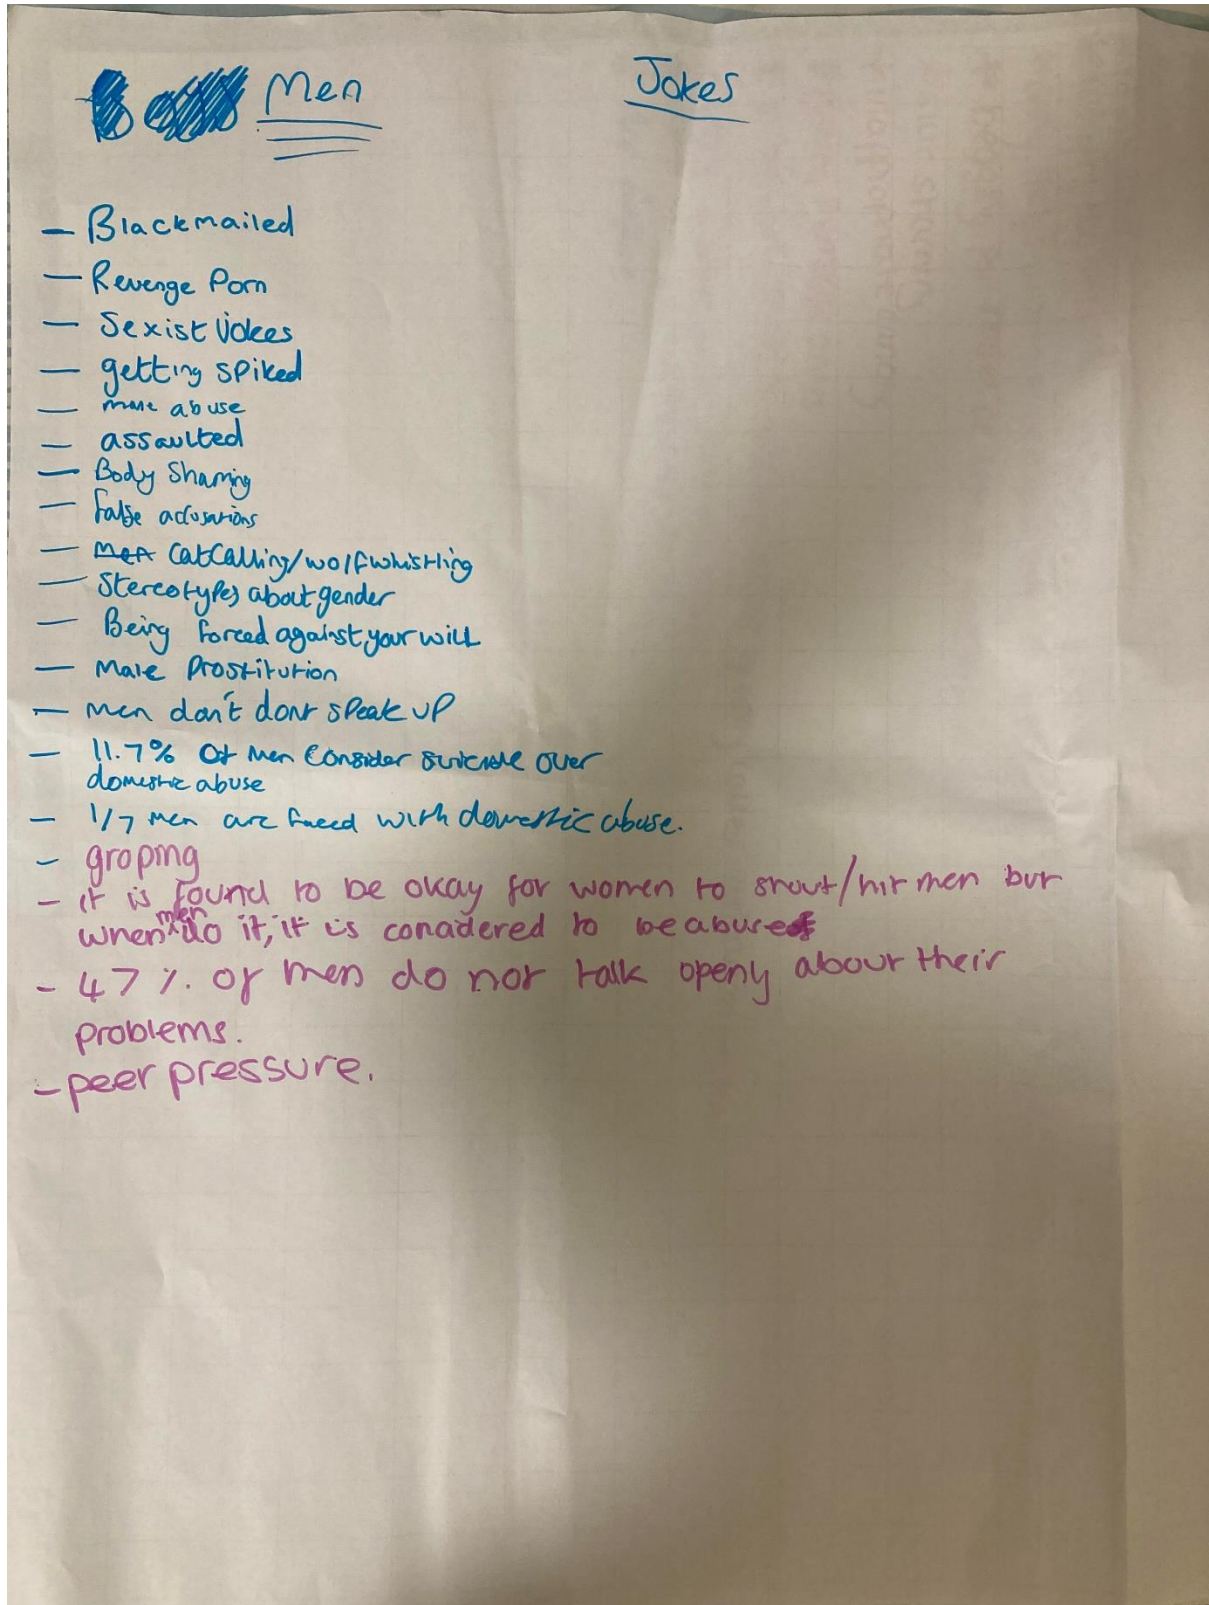 Men
Jokes
- Blackmailed
- Revenge Porn
- Sexist Jokes
- getting spiked
- abuse
- assaulted
- Body Shaming
- false accusations
- men CatCalling/wolfwhistling
- Stereotypes about gender
- Being forced against your will
- Male Prostitution
- men don't dont speak up
- 11.7% of men consider suicide over
domestic abuse
- 1/7 men are faced with domestic abuse.
- groping
- it is found to be okay for women to shout/hit men but
when men do it, it is conadered to be abuse
- 47%. of men do not talk openy about their
problems.
- peer pressure.